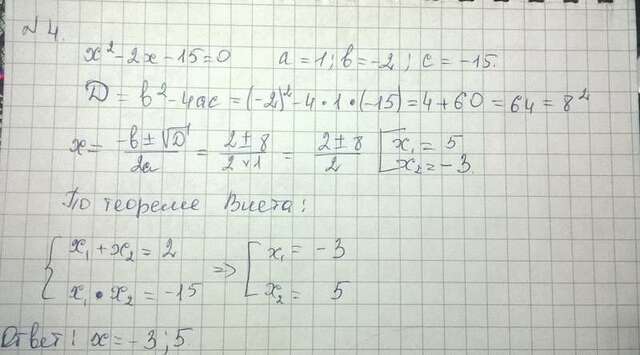 № 4.
x² - 2x - 15 = 0   a = 1; b = -2; c = -15.
D = b² - 4ac = (-2)² - 4 • 1 • (-15) = 4 + 60 = 64 = 8²
x = (-b ± √D)/(2a) = (2 ± 8)/(2 · 1) = (2 ± 8)/2 [x₁ = 5
x₂ = -3
По теореме Виета:
{x₁ + x₂ = 2 ⇒ [x₁ = -3
x₁ • x₂ = -15   x₂ = 5
Ответ: x = -3; 5